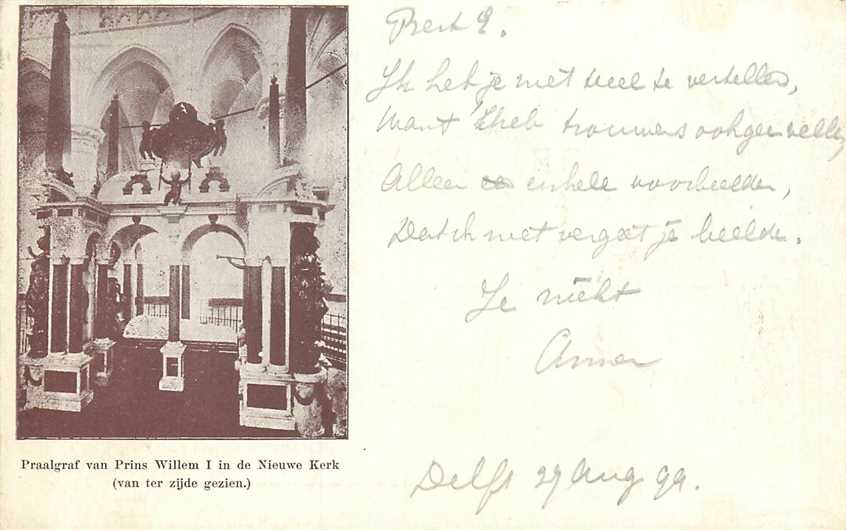 Praalgraf van Prins Willem I in de Nieuwe Kerk
(van ter zijde gezien.)
Ik heb je niet veel te vertellen,
Want 'k heb trouwens ook geen
Alleen enkele woorden,
Dat ik niet vergeet je beelde.
Je nicht
Delft 29 Aug 99.